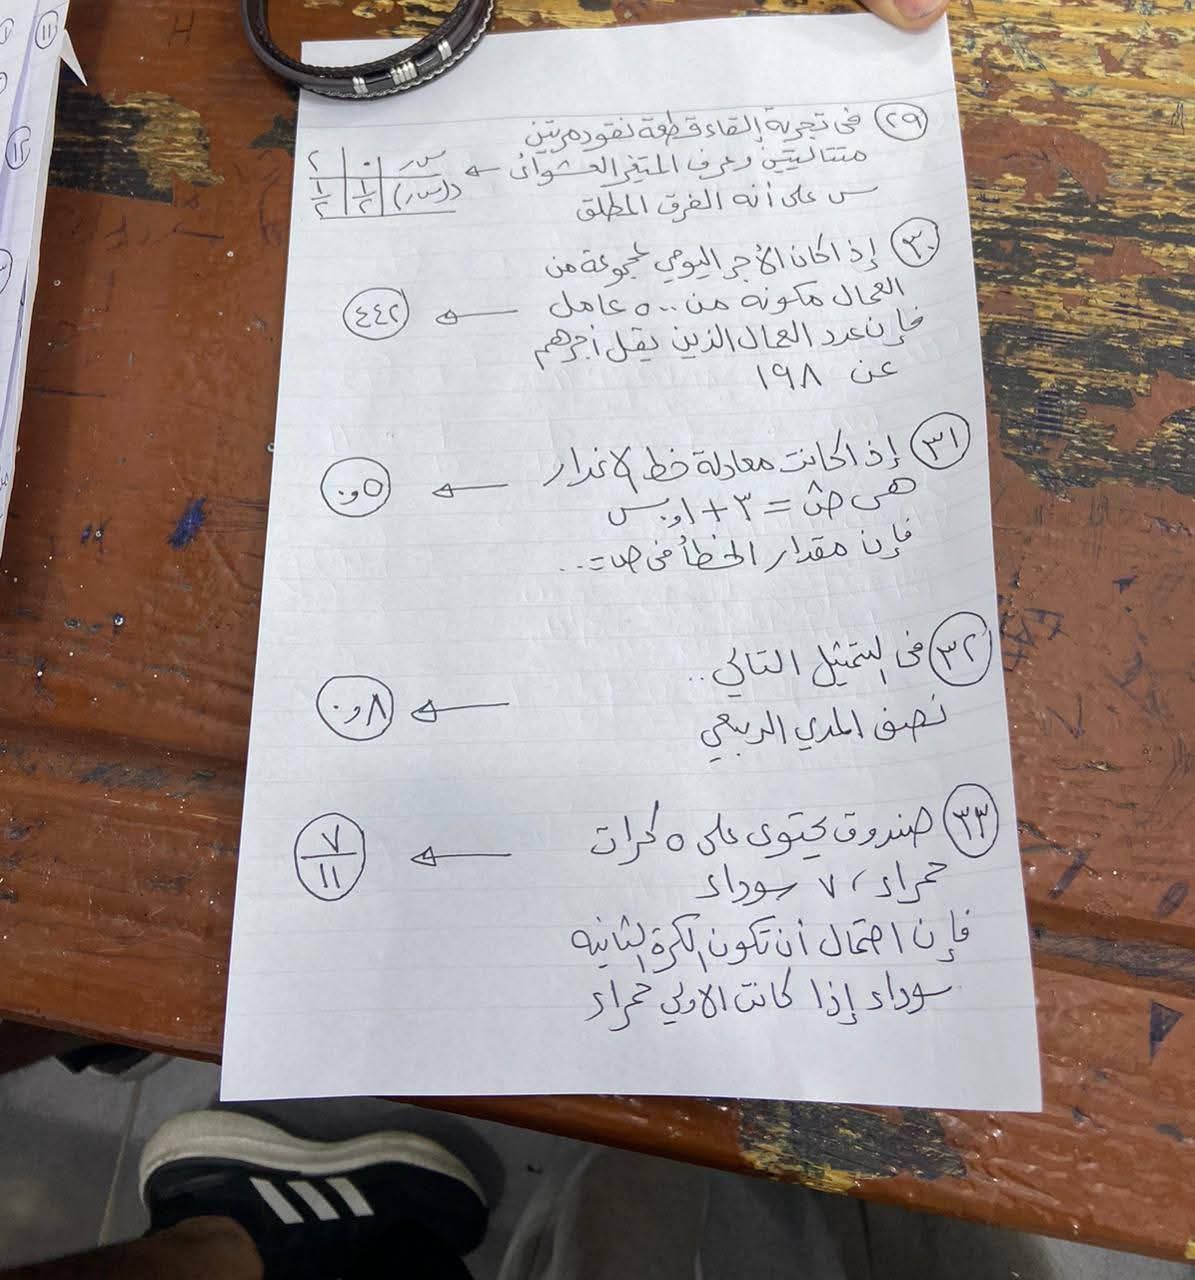 ٢٩ في تجربة إلقاء قطعة نقود مرتين
متتاليتين وعرف المتغير العشوائى
س على أنه الفرق المطلق
سر ٠ ٢
د(سر) ١/٢ ١/٢
٣٠ إذا كان الأجر اليومي لمجموعة من
العمال مكونه من ٥٠٠ عامل
فإن عدد العمال الذين يقل أجرهم
عن ١٩٨
٤٤٢
٣١ إذا كانت معادلة خط الانحدار
هى صَ = ٣ + ٠٫١ س
فإن مقدار الخطأ في ص = ..
٠٫٥
٣٢ في التمثيل التالي ..
نصف المدي الربيعي
٠٫٨
٣٣ صندوق يحتوى على ٥ كرات
حمراء ، ٧ سوداء
فإن احتمال أن تكون الكرة الثانيه
سوداء إذا كانت الاولي حمراء
٧/١١
١١
١٢